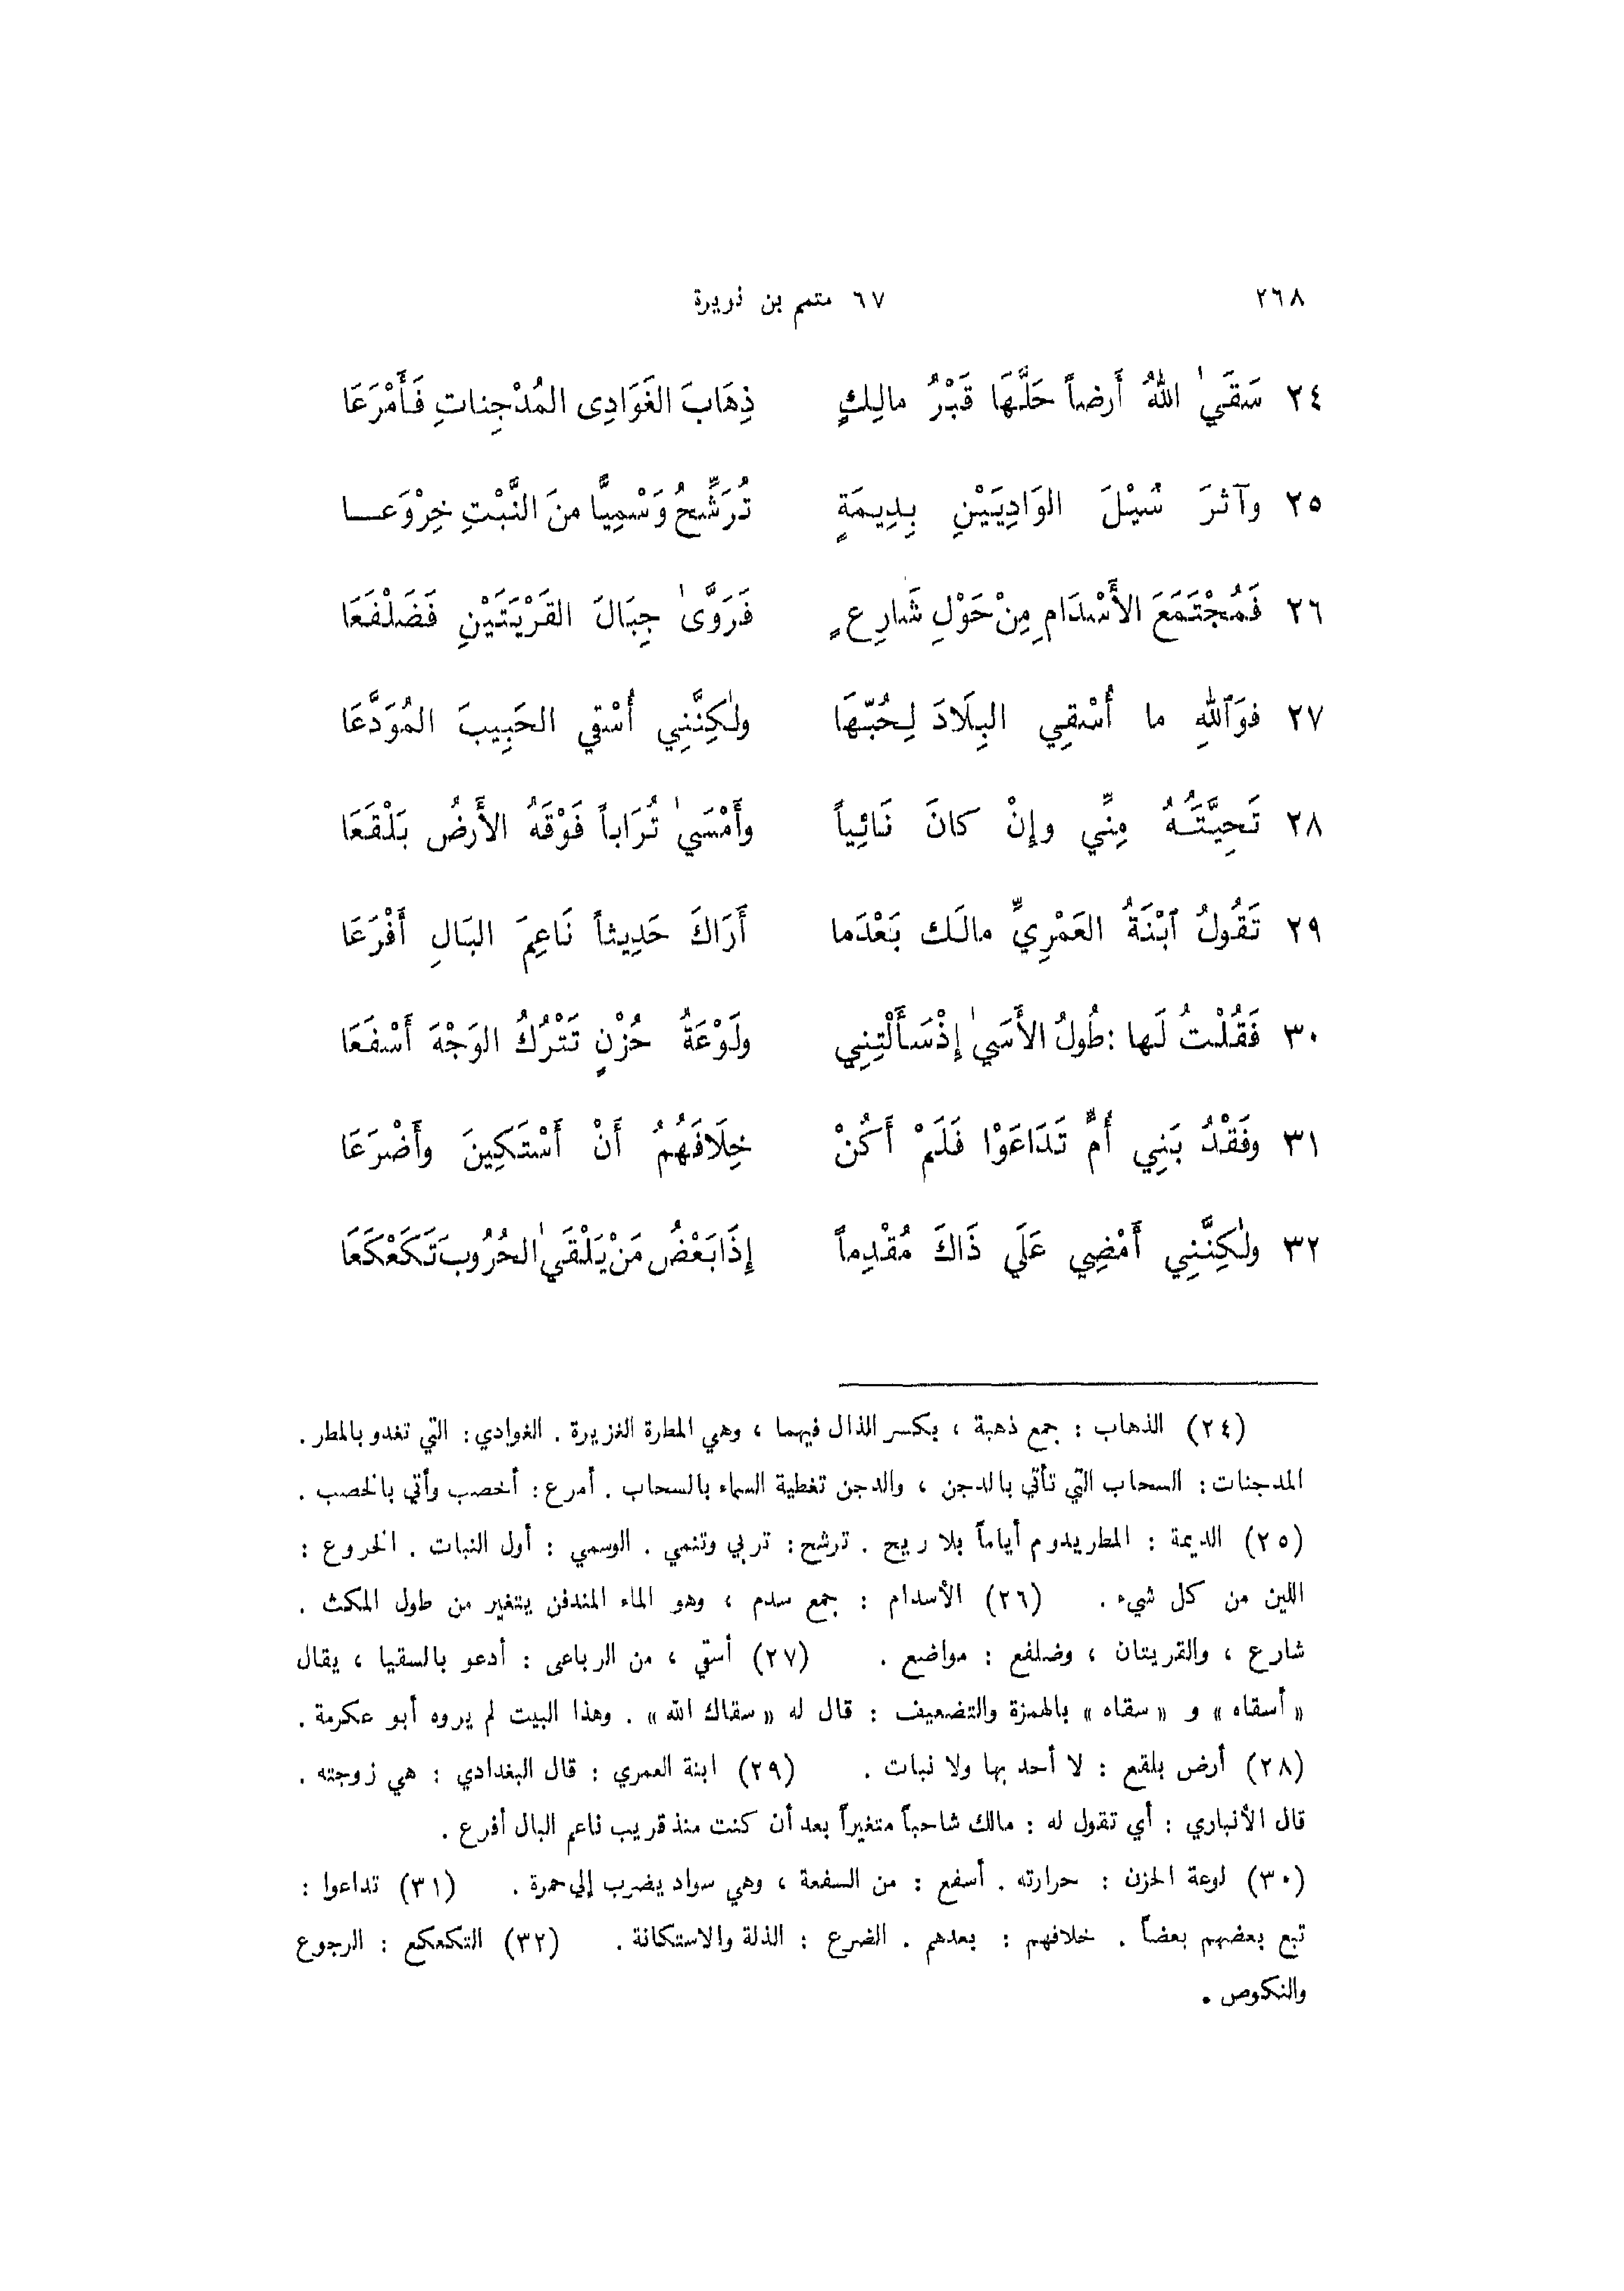 ٢٦٨ ٦٧ متمم بن نويرة
٢٤ سَقَىٰ اللهُ أَرضاً حَلَّهَا قَبْرُ مالِكٍ ذِهَابَ الغَوَادِى المُدْجِناتِ فَأَمْرَعَا
٢٥ وآثَرَ سَيْلَ الوَادِيَيْنِ بِدِيمَةٍ تُرَشِّحُ وَسْمِيًّا منَ النَّبْتِ خِرْوَعا
٢٦ فَمُجْتَمَعَ الأَسْدَامِ مِنْ حَوْلِ شَارِعٍ فَرَوَّىٰ جِبَالَ القَرْيَتَيْنِ فَضَلْفَعَا
٢٧ فوَٱللهِ ما أُسْقِي البِلَادَ لِحُبِّهَا ولٰكِنَّنِي أُسْقِي الحَبِيبَ المُوَدَّعَا
٢٨ تَحِيَّتَهُ مِنِّي وإِنْ كانَ نَائِياً وأَمْسَىٰ تُرَاباً فَوْقَهُ الأَرضُ بَلْقَعَا
٢٩ تَقُولُ ٱبْنَةُ العَمْرِيِّ مالَك بَعْدَما أَرَاكَ حَدِيثاً نَاعِمَ البَالِ أَفْرَعَا
٣٠ فَقُلْتُ لَها : طُولُ الأَسَىٰ إِذْ سَأَلْتِنِي ولَوْعَةُ حُزْنٍ تَتْرُكُ الوَجْهَ أَسْفَعَا
٣١ وفَقْدُ بَنِي أُمٍّ تَدَاعَوْا فَلَمْ أَكُنْ خِلَافَهُمُ أَنْ أَسْتَكِينَ وأَضْرَعَا
٣٢ ولٰكِنَّنِي أَمْضِي عَلَي ذَاكَ مُقْدِماً إِذَا بَعْضُ مَنْ يَلْقَىٰ الحُرُوبَ تَكَعْكَعَا
(٢٤) الذهاب : جمع ذهبة ، بكسر الذال فيهما ، وهي المطرة الغزيرة . الغوادي : التي تغدو بالمطر .
المدجنات : السحاب التي تأتي بالدجن ، والدجن تغطية السماء بالسحاب . أمرع : أخصب وأتي بالخصب .
(٢٥) الديمة : المطر يدوم أياماً بلا ريح . ترشح : تربي وتنمي . الوسمي : أول النبات . الخروع :
اللين من كل شيء . (٢٦) الأسدام : جمع سدم ، وهو الماء المندفن يتغير من طول المكث .
شارع ، والقريتان ، وضلفع : مواضع . (٢٧) أسقي ، من الرباعى : أدعو بالسقيا ، يقال
« أسقاه » و « سقاه » بالهمزة والتضعيف : قال له « سقاك الله » . وهذا البيت لم يروه أبو عكرمة .
(٢٨) أرض بلقع : لا أحد بها ولا نبات . (٢٩) ابنة العمري : قال البغدادي : هي زوجته .
قال الأنباري : أي تقول له : مالك شاحباً متغيراً بعد أن كنت منذ قريب ناعم البال أفرع .
(٣٠) لوعة الحزن : حرارته . أسفع : من السفعة ، وهي سواد يضرب إلى حمرة . (٣١) تداعوا :
تبع بعضهم بعضاً . خلافهم : بعدهم . الضرع : الذلة والاستكانة . (٣٢) التكعكع : الرجوع
والنكوص .